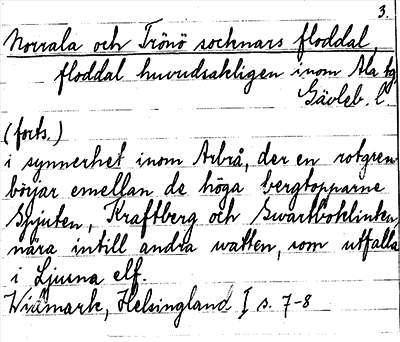 3.
Norrala och Trönö socknars floddal,
floddal huvudsakligen inom Ala tg,
Gävleb. l.
(forts.)
i synnerhet inom Arbrå, der en rotgren
börjar emellan de höga bergtopparne
Spjuten, Kraftberg och Swartboklinten,
nära intill andra watten, som utfalla
i Ljusna elf.
Widmark, Helsingland I s. 7-8